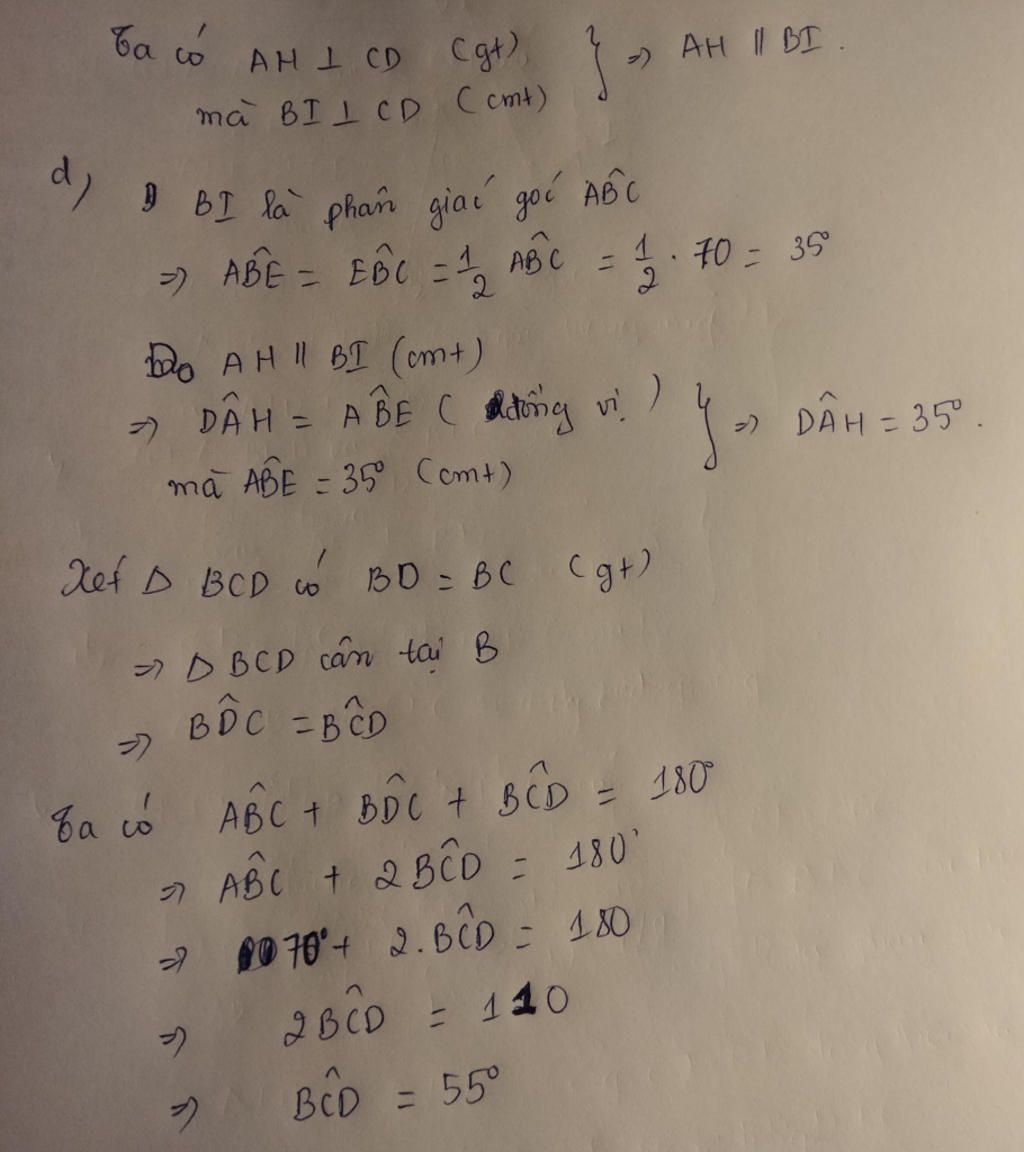 Ta có AH ⊥ CD (gt) } => AH // BI.
mà BI ⊥ CD (cmt)
d) BI là phân giác góc AB̂C
=> AB̂E = EB̂C = 1/2 AB̂C = 1/2 . 70 = 35°
Do AH // BI (cmt)
=> DÂH = AB̂E ( đồng vị ) } => DÂH = 35°.
mà AB̂E = 35° (cmt)
Xét Δ BCD có BD = BC (gt)
=> Δ BCD cân tại B
=> BD̂C = BĈD
Ta có AB̂C + BD̂C + BĈD = 180°
=> AB̂C + 2BĈD = 180°
=> 70° + 2.BĈD = 180
=> 2BĈD = 110
=> BĈD = 55°